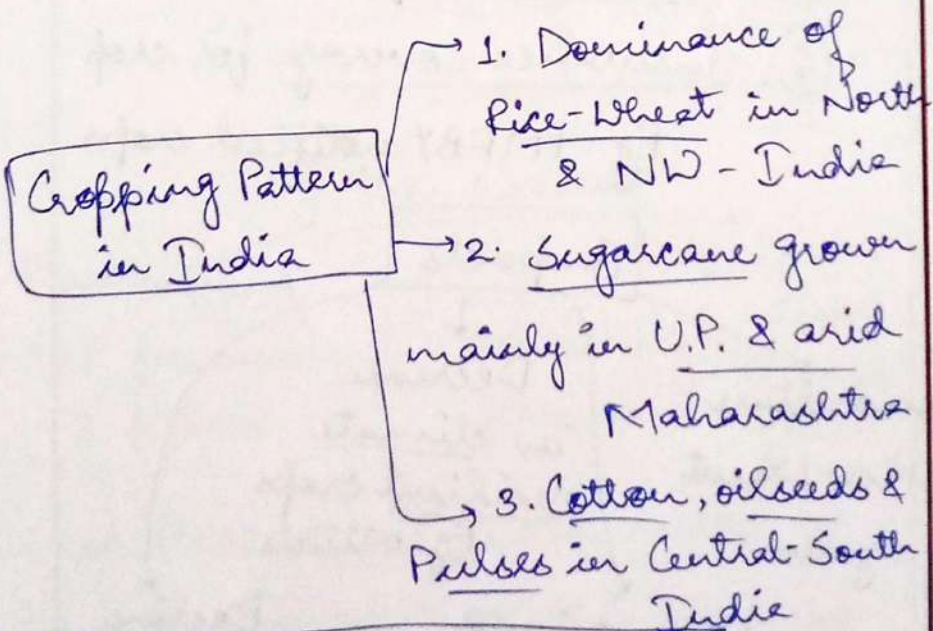 Cropping Pattern
in India
1. Dominance of
Rice-Wheat in North
& NW - India
2. Sugarcane grown
mainly in U.P. & arid
Maharashtra
3. Cotton, oilseeds &
Pulses in Central-South
India